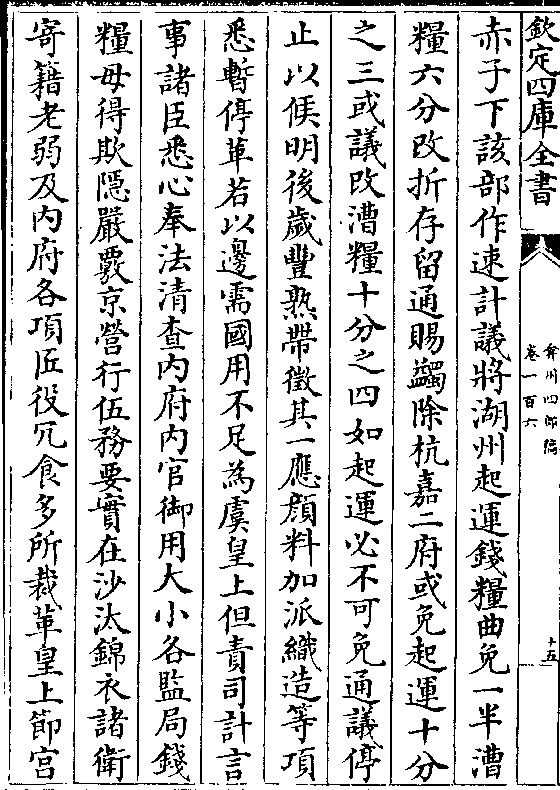 欽定四庫全書
弇州四部稿
卷一百六
十五
赤子下該部作速計議將湖州起運錢糧曲免一半漕
糧六分改折存留通賜蠲除杭嘉二府或免起運十分
之三或議改漕糧十分之四如起運必不可免通議停
止以俟明後歲豐熟帶徵其一應顏料加派織造等項
悉暫停革若以邊需國用不足為虞皇上但責司計言
事諸臣悉心奉法清查內府內官御用大小各監局錢
糧毋得欺隱嚴覈京營行伍務要實在沙汰錦衣諸衛
寄籍老弱及內府各項匠役冗食多所裁革皇上節宮